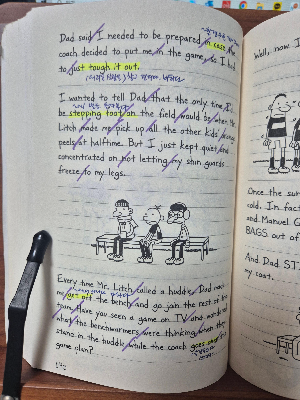 Dad said I needed to be prepared in case the
coach decided to put me in the game, so I had
to just tough it out.
I wanted to tell Dad that the only time I'd
be stepping foot on the field would be when Mr.
Litch made me pick up all the other kids' orange
peels at halftime. But I just kept quiet and
concentrated on not letting my shin guards
freeze to my legs.
Every time Mr. Litch called a huddle, Dad made
me get off the bench and go join the rest of the
team. Have you seen a game on TV and wondered
what the benchwarmers were thinking when they
stand in the huddle while the coach goes over the
game plan?
Well, now I
Once the sun
cold. In fact
and Manuel G
BAGS out of
And Dad ST
my coat.